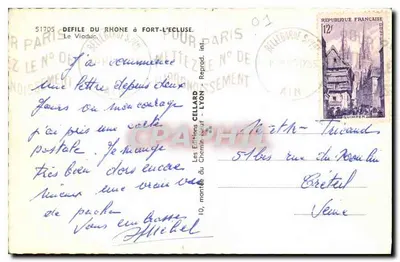 51705 - DEFILE DU RHONE à FORT-L'ECLUSE.
Le Viaduc.
POUR PARIS
METTEZ LE N° DE
L'ARRONDISSEMENT
BELLEGARDE
AIN
REPUBLIQUE FRANÇAISE
12F
J'ai commencé
une lettre depuis deux
jours
mon courage
j'ai pris une carte
postale. Je mange
très bien dors encore
mieux une vraie vie
de pacha
Vous embrasse
Michel
Les Editions CELLARD
10, montée du Chemin Neuf - LYON - Reprod. int.
51bis rue du Moulin
Créteil
Seine